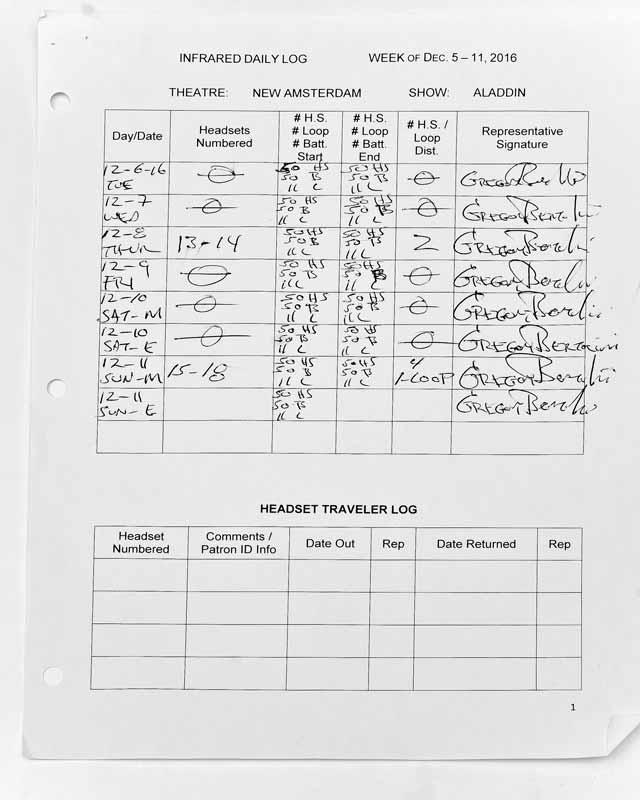 INFRARED DAILY LOG WEEK OF DEC. 5 – 11, 2016
THEATRE: NEW AMSTERDAM SHOW: ALADDIN
Day/Date
Headsets
Numbered
# H.S.
# Loop
# Batt.
Start
# H.S.
# Loop
# Batt.
End
# H.S. /
Loop
Dist.
Representative
Signature
12-6-16
TUE
0
50 HS
50 B
11 L
50 HS
50 B
11 L
0
12-7
WED
0
50 HS
50 B
11 L
50 HS
50 B
11 L
0
Gregory Bertolini
12-8
THUR
13-14
50 HS
50 B
11 L
50 HS
50 B
11 L
2
Gregory Bertolini
12-9
FRI
0
50 HS
50 B
11 L
50 HS
50 B
11 L
0
Gregory Bertolini
12-10
SAT-M
0
50 HS
50 B
11 L
50 HS
50 B
11 L
0
Gregory Bertolini
12-10
SAT-E
0
50 HS
50 B
11 L
50 HS
50 B
11 L
0
Gregory Bertolini
12-11
SUN-M
15-18
50 HS
50 B
11 L
50 HS
50 B
11 L
4/
1-LOOP
Gregory Bertolini
12-11
SUN-E
50 HS
50 B
11 L
Gregory Bertolini
HEADSET TRAVELER LOG
Headset
Numbered
Comments /
Patron ID Info
Date Out
Rep
Date Returned
Rep
1